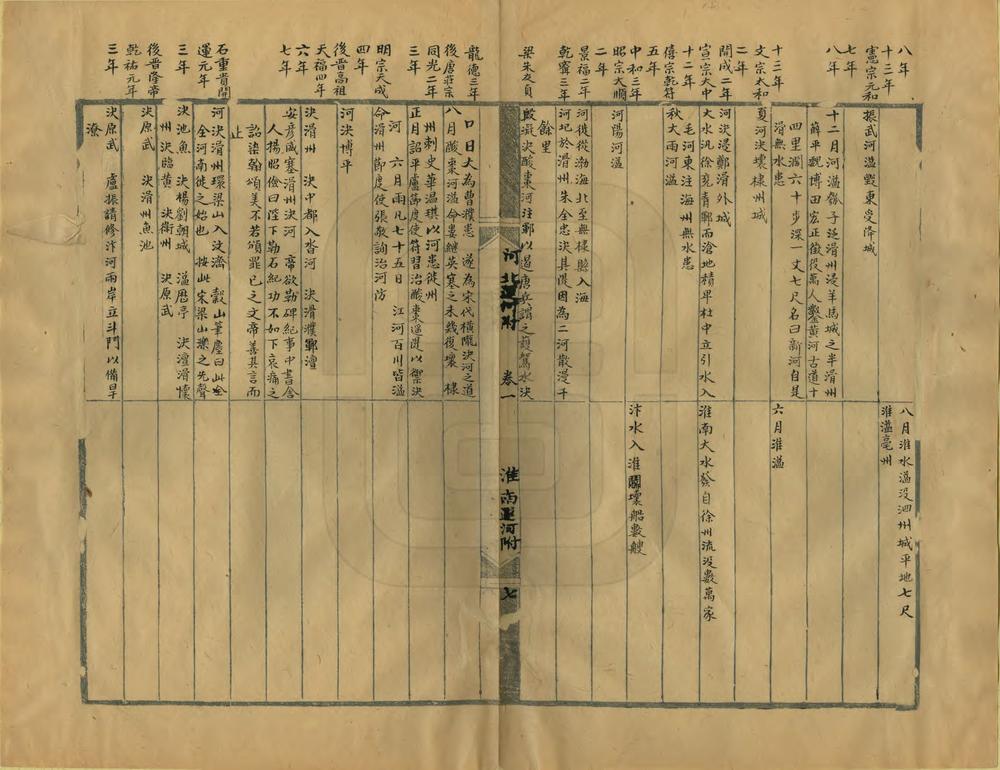 八年
八月淮水溢沒泗州城平地七尺
十三年
淮溢亳州
憲宗元和
七年
振武河溢毀東受降城
八年
十二月河溢瓠子泛滑州漫羊馬城之半滑州
薛平魏博田宏正徵役萬人鑿黃河古道十
四里濶六十步深一丈七尺名曰新河自是
滑無水患
十三年
六月淮溢
文宗太和
二年
夏河決壞棣州城
開成二年
河決浸鄭滑外城
宣宗大中
十二年
大水汎徐兗青鄆而滄地積卑杜中立引水入
毛河東注海州無水患
淮南大水發自徐州流沒數萬家
僖宗乾符
五年
秋大雨河溢
中和三年
汴水入淮關壞船數艘
昭宗大順
二年
河陽河溢
景福二年
河徙從渤海北至無棣縣入海
乾寧三年
河圮於滑州朱全忠決其隄因為二河散漫千
餘里
梁朱友貞
龍德三年
段凝決酸棗河注鄆以遏唐兵謂之護駕水決
口日大為曹濮患 遂為宋代橫隴決河之道
河北運河附
卷一
淮南運河附
七
後唐莊宗
同光二年
八月酸棗河溢命婁繼英塞之未幾復壞 棣
州刺史華温琪以河患徙州
三年
正月詔平盧節度使符習治酸棗遙隄以禦決
河 六月雨凡七十五日 江河百川皆溢
明宗天成
四年
命滑州節度使張敬詢治河防
後晉高祖
天福四年
河決博平
六年
決滑州 決中都入沓河 決滑濮鄆澶
七年
安彥威塞滑州決河 帝欲勒碑紀事中書舍
人楊昭儉曰陛下勒石紀功不如下哀痛之
詔染翰頌美不若頒罪己之文帝善其言而
止
石重貴開
運元年
河決滑州環梁山入汶濟 穀山筆麈曰此全
全河南徙之始也 按此宋梁山濼之先聲
三年
決池魚 決楊劉朝城 溢歷亭 決澶滑懷
州決臨黃 決衛州 決原武
後晉隱帝
乾祐元年
決原武 決滑州魚池
三年
決原武 盧振請修汴河兩岸立斗門以備旱
潦